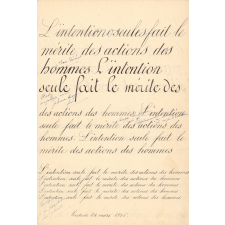 L'intention seule fait le
mérite des actions des
hommes L'intention
seule fait le mérite des
des actions des hommes. L'intention
seule fait le mérite des actions des
hommes L'intention seule fait le
mérite des actions des hommes
L'intention seule fait le mérite des actions des hommes
L'intention seule fait le mérite des actions des hommes
L'intention seule fait le mérite des actions des hommes
L'intention seule fait le mérite des actions des hommes
mars